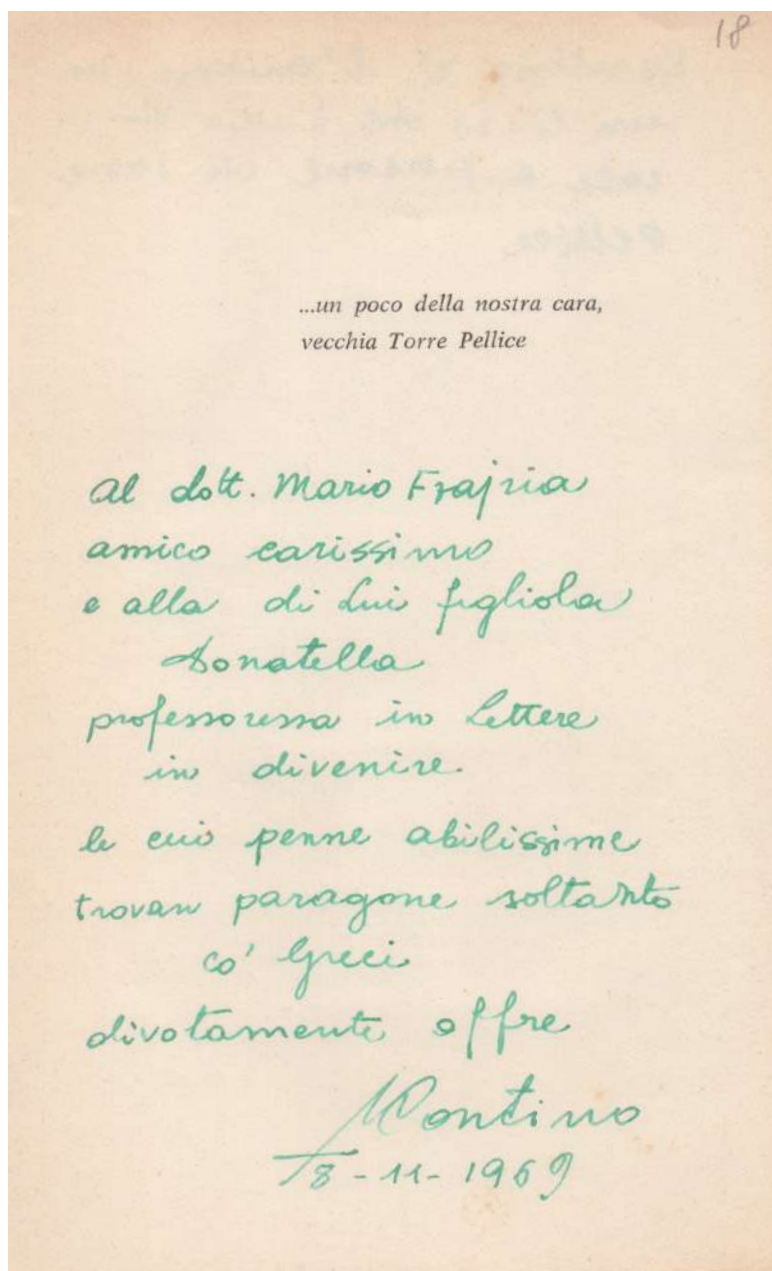 18
...un poco della nostra cara,
vecchia Torre Pellice
Al dott. Mario Frajria
amico carissimo
e alla di Lui figliola
Donatella
professoressa in Lettere
in divenire.
le cui penne abilissime
trovan paragone soltanto
co' Greci
divotamente offre
8-11-1969